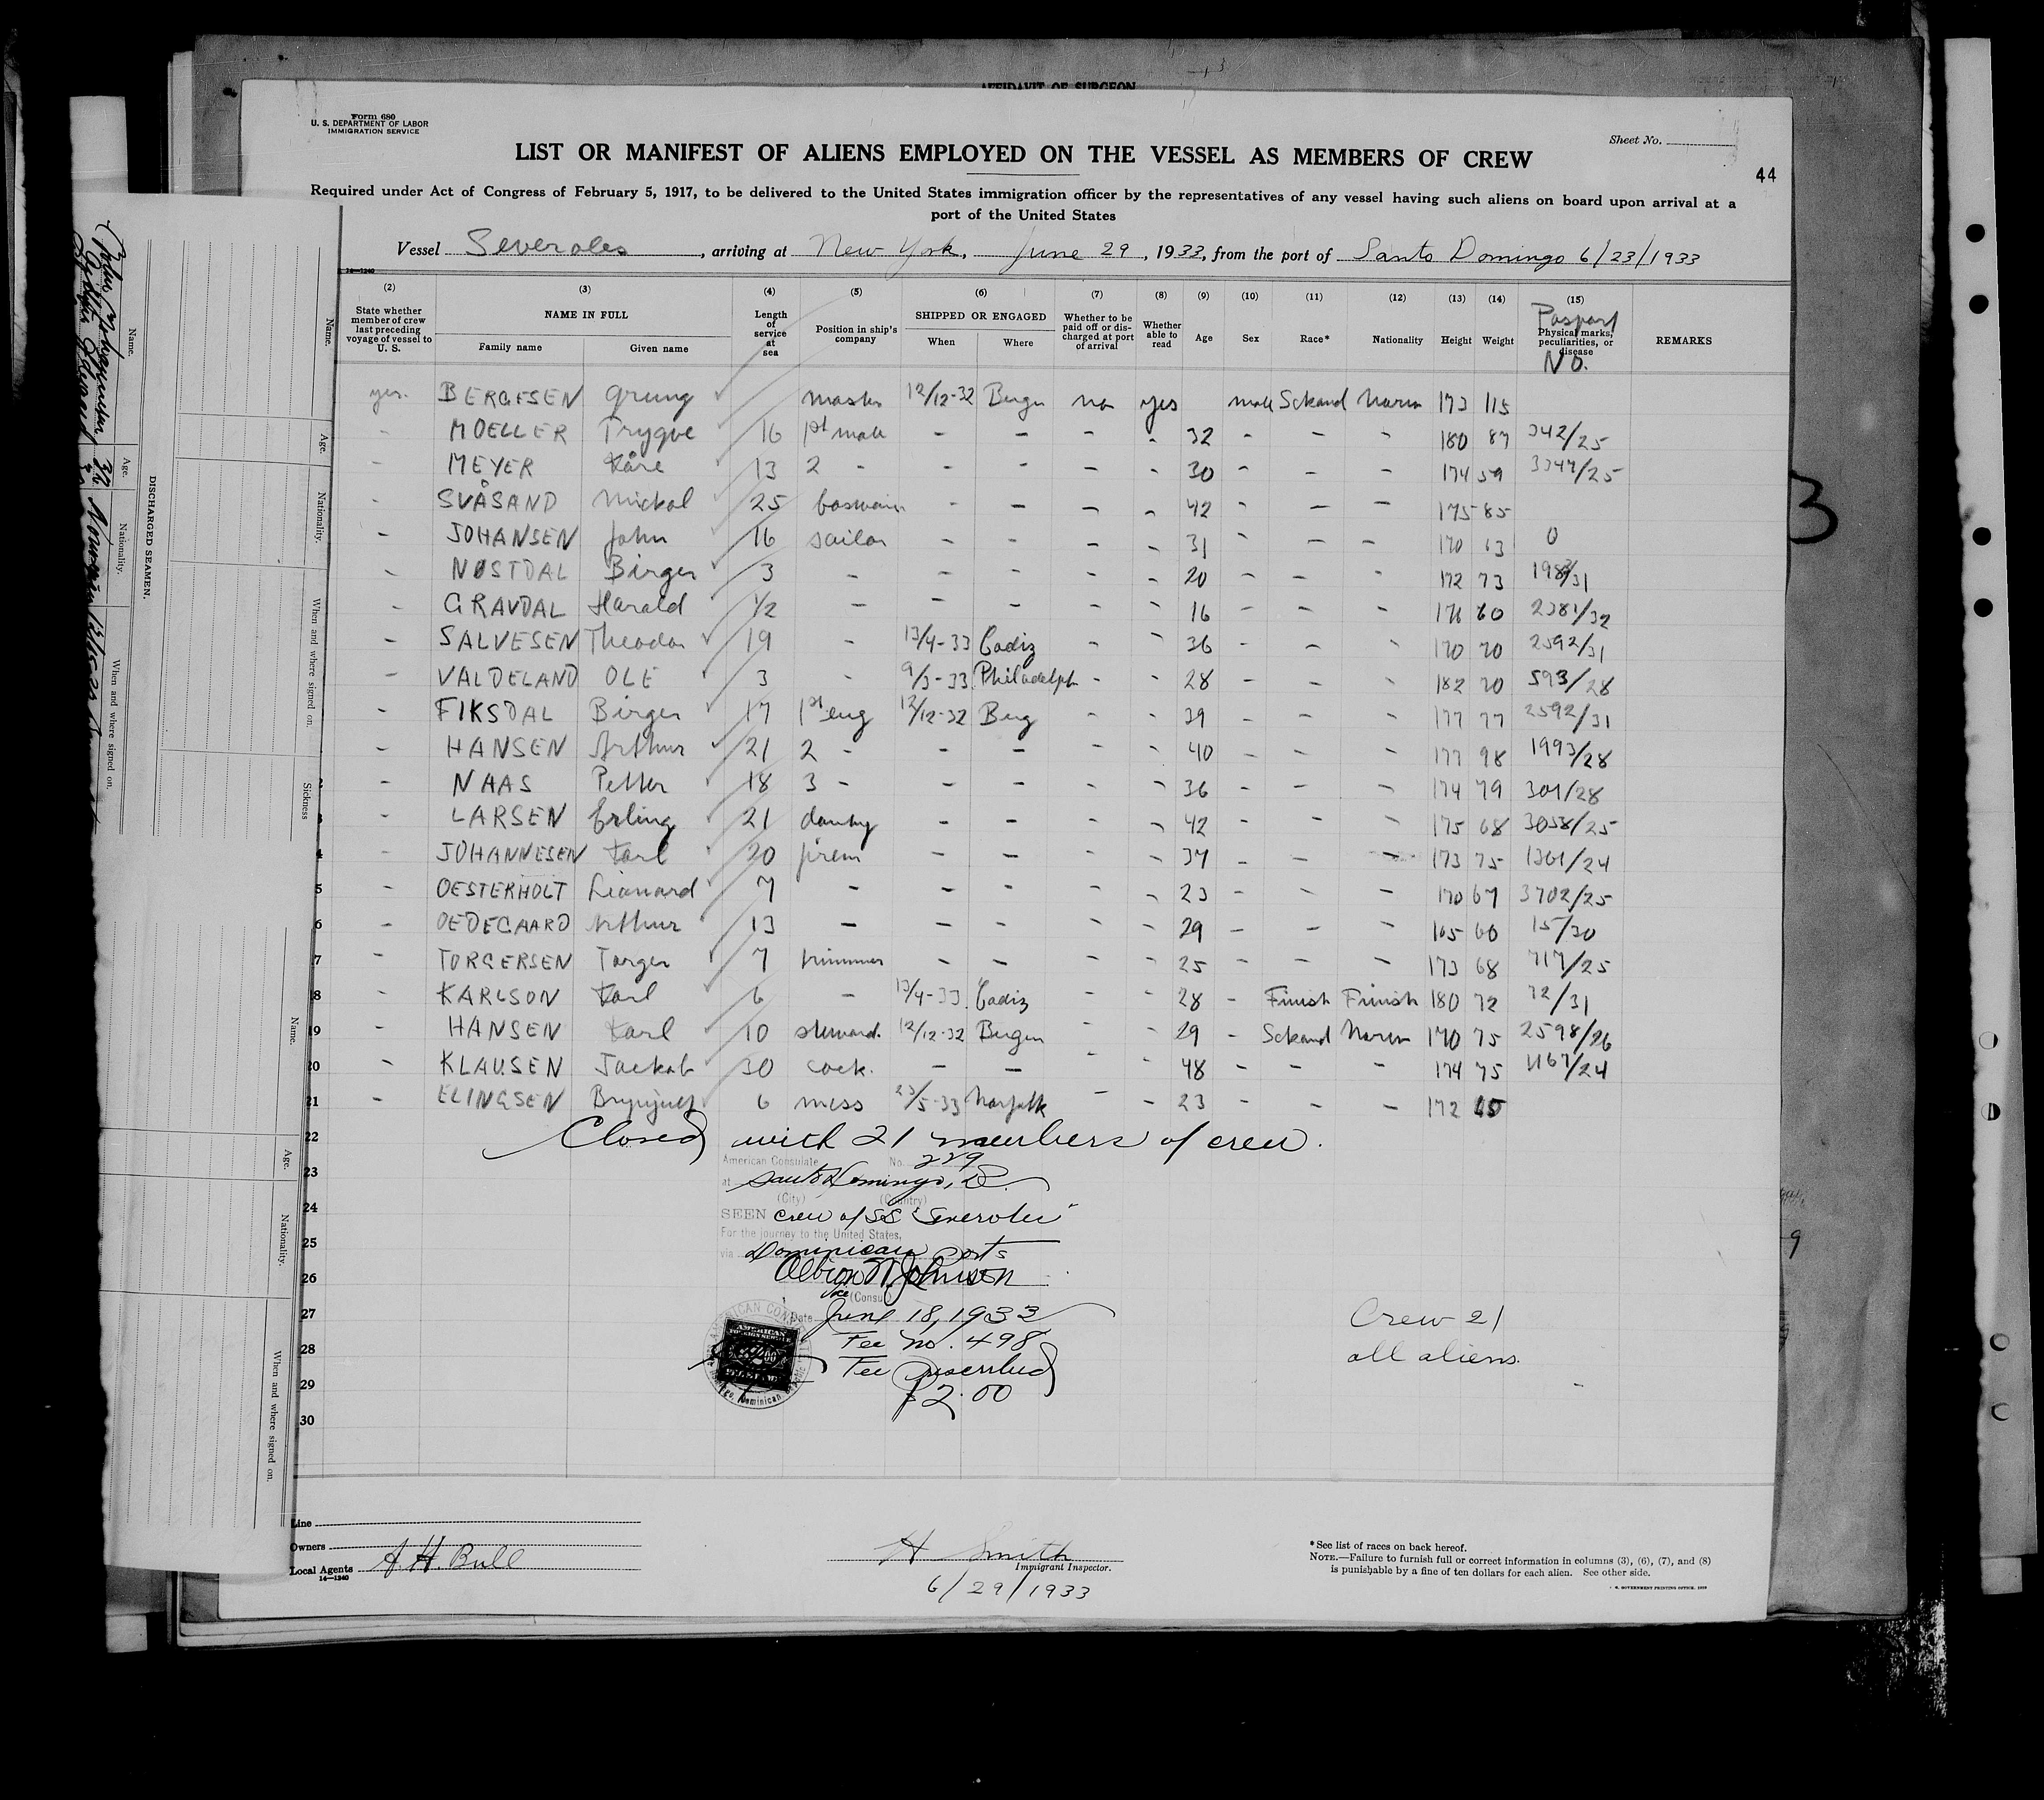 AFFIDAVIT OF SURGEON
Form 680
U. S. DEPARTMENT OF LABOR
IMMIGRATION SERVICE
Sheet No.
LIST OR MANIFEST OF ALIENS EMPLOYED ON THE VESSEL AS MEMBERS OF CREW
44
Required under Act of Congress of February 5, 1917, to be delivered to the United States immigration officer by the representatives of any vessel having such aliens on board upon arrival at a
port of the United States
Vessel Severoles, arriving at New York, June 29, 1933, from the port of Santo Domingo 6/23/1933
14—1240
(2) (3) (4) (5) (6) (7) (8) (9) (10) (11) (12) (13) (14) (15)
State whether member of crew last preceding voyage of vessel to U. S. NAME IN FULL Family name Given name Length of service at sea Position in ship's company SHIPPED OR ENGAGED When Where Whether to be paid off or discharged at port of arrival Whether able to read Age Sex Race* Nationality Height Weight Pasport Physical marks, peculiarities, or disease No. REMARKS
yes. BERGESEN Grung master 12/12-32 Bergn no yes male Sckand Norw 173 115
- MOELLER Trygve 16 1st mate - - - - 32 - - - 180 87 342/25
- MEYER Kåre 13 2 - - - - - 30 - - - 174 59 3347/25
- SVÅSAND Mickal 25 boswain - - - - 42 - - - 175 85
- JOHANSEN John 16 sailor - - - - 31 - - - 170 63 0
- NØSTDAL Birger 3 - - - - - 20 - - - 172 73 /31
- GRAVDAL Harald 1/2 - - - - - 16 - - - 176 60 2381/32
- SALVESEN Theodor 19 - 13/4-33 Cadiz - - 36 - - - 170 70 2592/31
- VALDELAND OLE 3 - 9/3-33 Philadelph - - 28 - - - 182 70 593/28
- FIKSDAL Birger 17 1st eng 12/12-32 Berg - - 39 - - - 177 77 2592/31
- HANSEN Arthur 21 2 - - - - - 40 - - - 177 98 1993/28
- NAAS Petter 18 3 - - - - - 36 - - - 174 79 301/28
3 - LARSEN Erling 21 donky - - - - 42 - - - 175 68 3058/25
4 - JOHANNESEN Karl 20 firem - - - - 37 - - - 173 75 1361/24
5 - OESTERHOLT Lianard 7 - - - - - 23 - - - 170 67 3702/25
6 - OEDEGAARD Arthur 13 - - - - - 29 - - - 165 60 15/30
7 - TORGERSEN Torger 7 trimmer - - - - 25 - - - 173 68 717/25
18 - KARLSON Karl 6 - 13/4-33 Cadiz - - 28 - Finish Finish 180 72 72/31
19 - HANSEN Karl 10 steward. 12/12-32 Bergen - - 29 - Sckand Norw 170 75 2598/26
20 - KLAUSEN Jackob 30 cock. - - - - 48 - - - 174 75 1167/24
21 - ELINGSEN 6 mess 23/5-33 Norfolk - - 23 - - - 172 65
22 Closed with 21 members of crew.
23 American Consulate No. 229
at Santo Domingo, D.
(City) (Country)
24 SEEN crew of SS "Severoles"
For the journey to the United States,
25 via Dominican ports
26 Albion W. Johnson
Vice (Consul)
27 Date June 18, 1933
Crew 21
28 Fee No. 498
all aliens.
29 Fee prescribed
30 $2.00
AMERICAN
FOREIGN SERVICE
Line
Owners
Local Agents A. H. Bull
14—1240
H Smith
Immigrant Inspector.
6/29/1933
* See list of races on back hereof.
NOTE.—Failure to furnish full or correct information in columns (3), (6), (7), and (8)
is punishable by a fine of ten dollars for each alien. See other side.
DISCHARGED SEAMEN.
Name. Age. Nationality. When and where signed on.
Name. Age. Nationality. When and where signed on. Sickness
Name. Age. Nationality. When and where signed on.